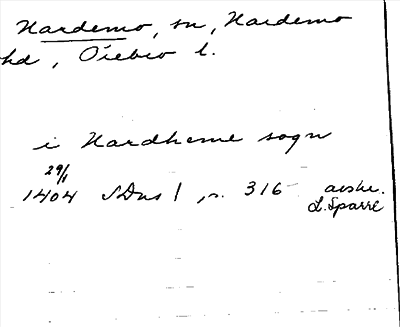 Hardemo, sn, Hardemo
hd, Örebro l.
i Hardheme sogn
29/1
1404 SDns 1, s. 316 avskr.
L. Sparre